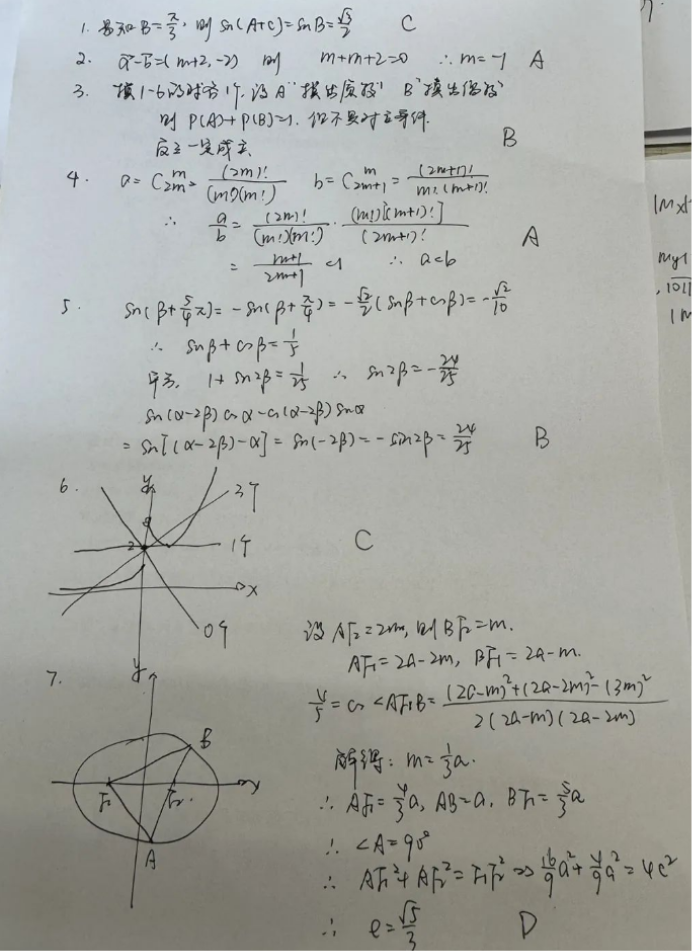 1. 易知B=π/3, 则 sin(A+C)=sinB=√3/2 C
2. a-b=(m+2,-2) 则 m+m+2=0 ∴m=-1 A
3. 摸1-6的球各1个, 设A"摸出质数" B"摸出偶数"
则 P(A)+P(B)=1. 但不是对立事件.
反之一定成立. B
4. a=C_{2m}^{m}=(2m)!/(m!)(m!) b=C_{2m+1}^{m}=(2m+1)!/m!(m+1)!
∴ a/b=(2m)!/(m!)(m!)·(m!)[(m+1)!]/(2m+1)!
=(m+1)/(2m+1)<1 ∴a<b A
5. sin(β+5/4π)=-sin(β+π/4)=-√2/2(sinβ+cosβ)=-√2/10
∴ sinβ+cosβ=1/5
平方, 1+sin2β=1/25 ∴ sin2β=-24/25
sin(α-2β)cosα-cos(α-2β)sinα
=sin[(α-2β)-α]=sin(-2β)=-sin2β=24/25 B
6. y
3个
2
1个
x
0个
C
7. y
B
F₁
F₂
x
A
设AF₂=2m, 则BF₂=m.
AF₁=2a-2m, BF₁=2a-m.
4/5=cos∠AF₁B=((2a-m)²+(2a-2m)²-(3m)²)/(2(2a-m)(2a-2m))
解得: m=1/3a.
∴ AF₁=4/3a, AB=a, BF₁=5/3a
∴ ∠A=90°
∴ AF₁²+AF₂²=F₁F₂² ⇒ 16/9a²+4/9a²=4c²
∴ e=√5/3 D